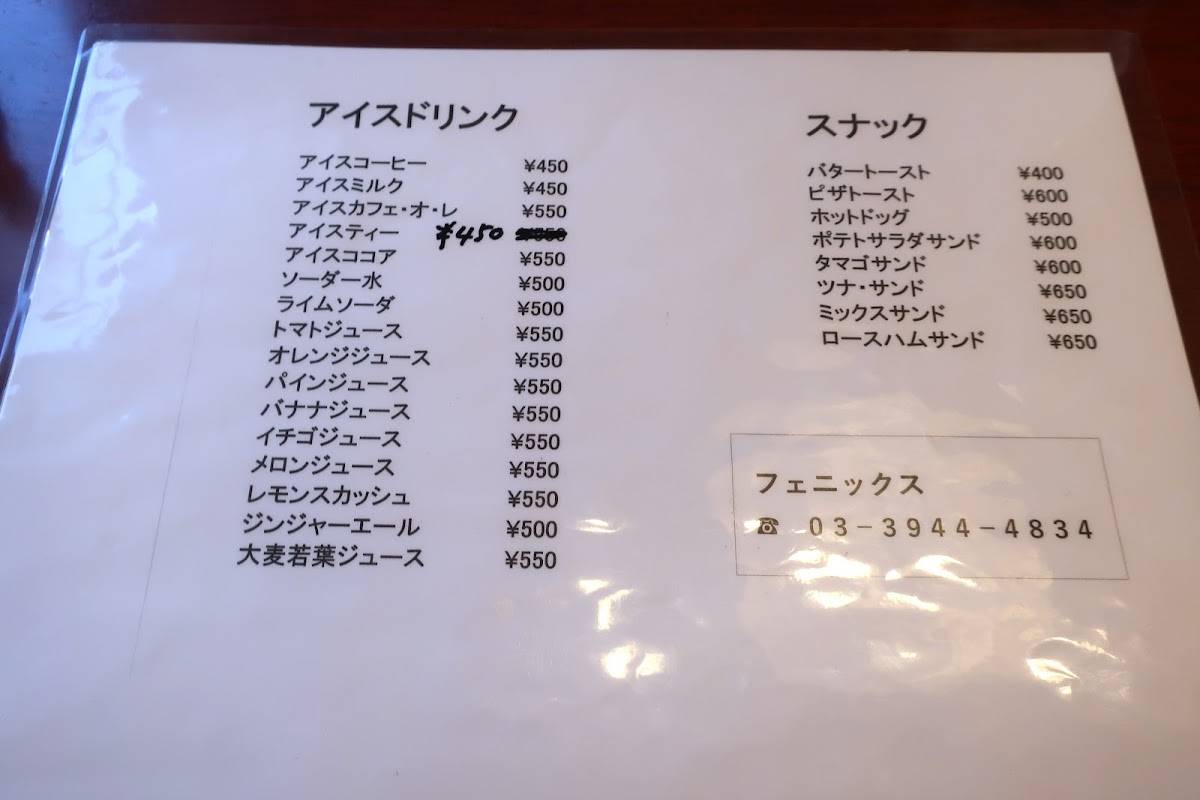 アイスドリンク
アイスコーヒー ¥450
アイスミルク ¥450
アイスカフェ・オ・レ ¥550
アイスティー ¥450
アイスココア ¥550
ソーダー水 ¥500
ライムソーダ ¥500
トマトジュース ¥550
オレンジジュース ¥550
パインジュース ¥550
バナナジュース ¥550
イチゴジュース ¥550
メロンジュース ¥550
レモンスカッシュ ¥550
ジンジャーエール ¥500
大麦若葉ジュース ¥550
スナック
バタートースト ¥400
ピザトースト ¥600
ホットドッグ ¥500
ポテトサラダサンド ¥600
タマゴサンド ¥600
ツナ・サンド ¥650
ミックスサンド ¥650
ロースハムサンド ¥650
フェニックス
☎ 03-3944-4834